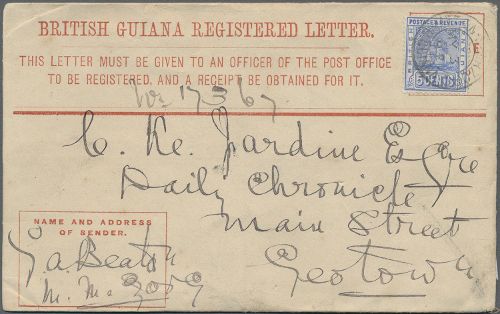 BRITISH GUIANA REGISTERED LETTER.
THIS LETTER MUST BE GIVEN TO AN OFFICER OF THE POST OFFICE
TO BE REGISTERED, AND A RECEIPT BE OBTAINED FOR IT.
POSTAGE & REVENUE
BRITISH
GUIANA
5 CENTS
C. Ke. Jardine Esqre
Daily Chronicle
Main Street
Geotown
NAME AND ADDRESS
OF SENDER.